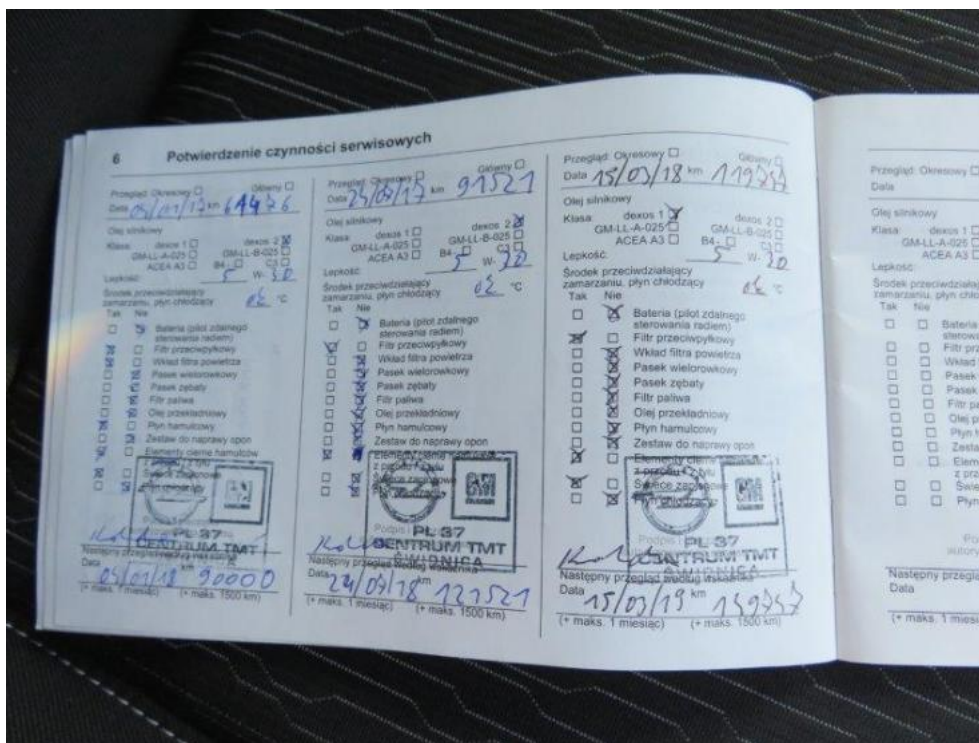 6 Potwierdzenie czynności serwisowych
Przegląd: Okresowy Główny
Data 05/01/17 km 61476
Olej silnikowy
Klasa: dexos 1 dexos 2
GM-LL-A-025 GM-LL-B-025
ACEA A3 B4- C3
Lepkość: 5 W- 30
Środek przeciwdziałający
zamarzaniu, płyn chłodzący °C
Tak Nie
Bateria (pilot zdalnego
sterowania radiem)
Filtr przeciwpyłkowy
Wkład filtra powietrza
Pasek wielorowkowy
Pasek zębaty
Filtr paliwa
Olej przekładniowy
Płyn hamulcowy
Zestaw do naprawy opon
Elementy cierne hamulców
z przodu i z tyłu
Świece zapłonowe
Płyn chłodzący
PL 37
CENTRUM TMT
Następny przegląd według wskaźnika
Data km
05/01/18 90000
(+ maks. 1 miesiąc) (+ maks. 1500 km)
Przegląd: Okresowy Główny
Data km 91521
Olej silnikowy
Klasa: dexos 1 dexos 2
GM-LL-A-025 GM-LL-B-025
ACEA A3 B4- C3
Lepkość: 5 W- 30
Środek przeciwdziałający
zamarzaniu, płyn chłodzący °C
Tak Nie
Bateria (pilot zdalnego
sterowania radiem)
Filtr przeciwpyłkowy
Wkład filtra powietrza
Pasek wielorowkowy
Pasek zębaty
Filtr paliwa
Olej przekładniowy
Płyn hamulcowy
Zestaw do naprawy opon
Elementy cierne hamulców
z przodu i z tyłu
Świece zapłonowe
Płyn chłodzący
GM
PL 37
CENTRUM TMT
ŚWIDNICA
Następny przegląd według wskaźnika
Data km
121521
(+ maks. 1 miesiąc) (+ maks. 1500 km)
Przegląd: Okresowy Główny
Data 15/03/18 km 119757
Olej silnikowy
Klasa: dexos 1 dexos 2
GM-LL-A-025 GM-LL-B-025
ACEA A3 B4- C3
Lepkość: 5 W- 30
Środek przeciwdziałający
zamarzaniu, płyn chłodzący °C
Tak Nie
Bateria (pilot zdalnego
sterowania radiem)
Filtr przeciwpyłkowy
Wkład filtra powietrza
Pasek wielorowkowy
Pasek zębaty
Filtr paliwa
Olej przekładniowy
Płyn hamulcowy
Zestaw do naprawy opon
Elementy cierne
z przodu i z tyłu
Świece zapłonowe
Płyn chłodzący
GM
Podpis i
PL 37
CENTRUM TMT
ŚWIDNICA
Następny przegląd według wskaźnika
Data 15/03/19 km 159757
(+ maks. 1 miesiąc) (+ maks. 1500 km)
Przegląd: Okresowy
Data
Olej silnikowy
Klasa: dexos 1
GM-LL-A-025
ACEA A3
Lepkość:
Środek przeciwdziałają
zamarzaniu, płyn chłod
Tak Nie
Bateria
sterowa
Filtr prz
Wkład
Pasek
Pasek
Filtr pa
Olej p
Płyn h
Zesta
Elem
z prz
Świe
Płyn
Następny przeglą
Data
(+ maks. 1 miesi